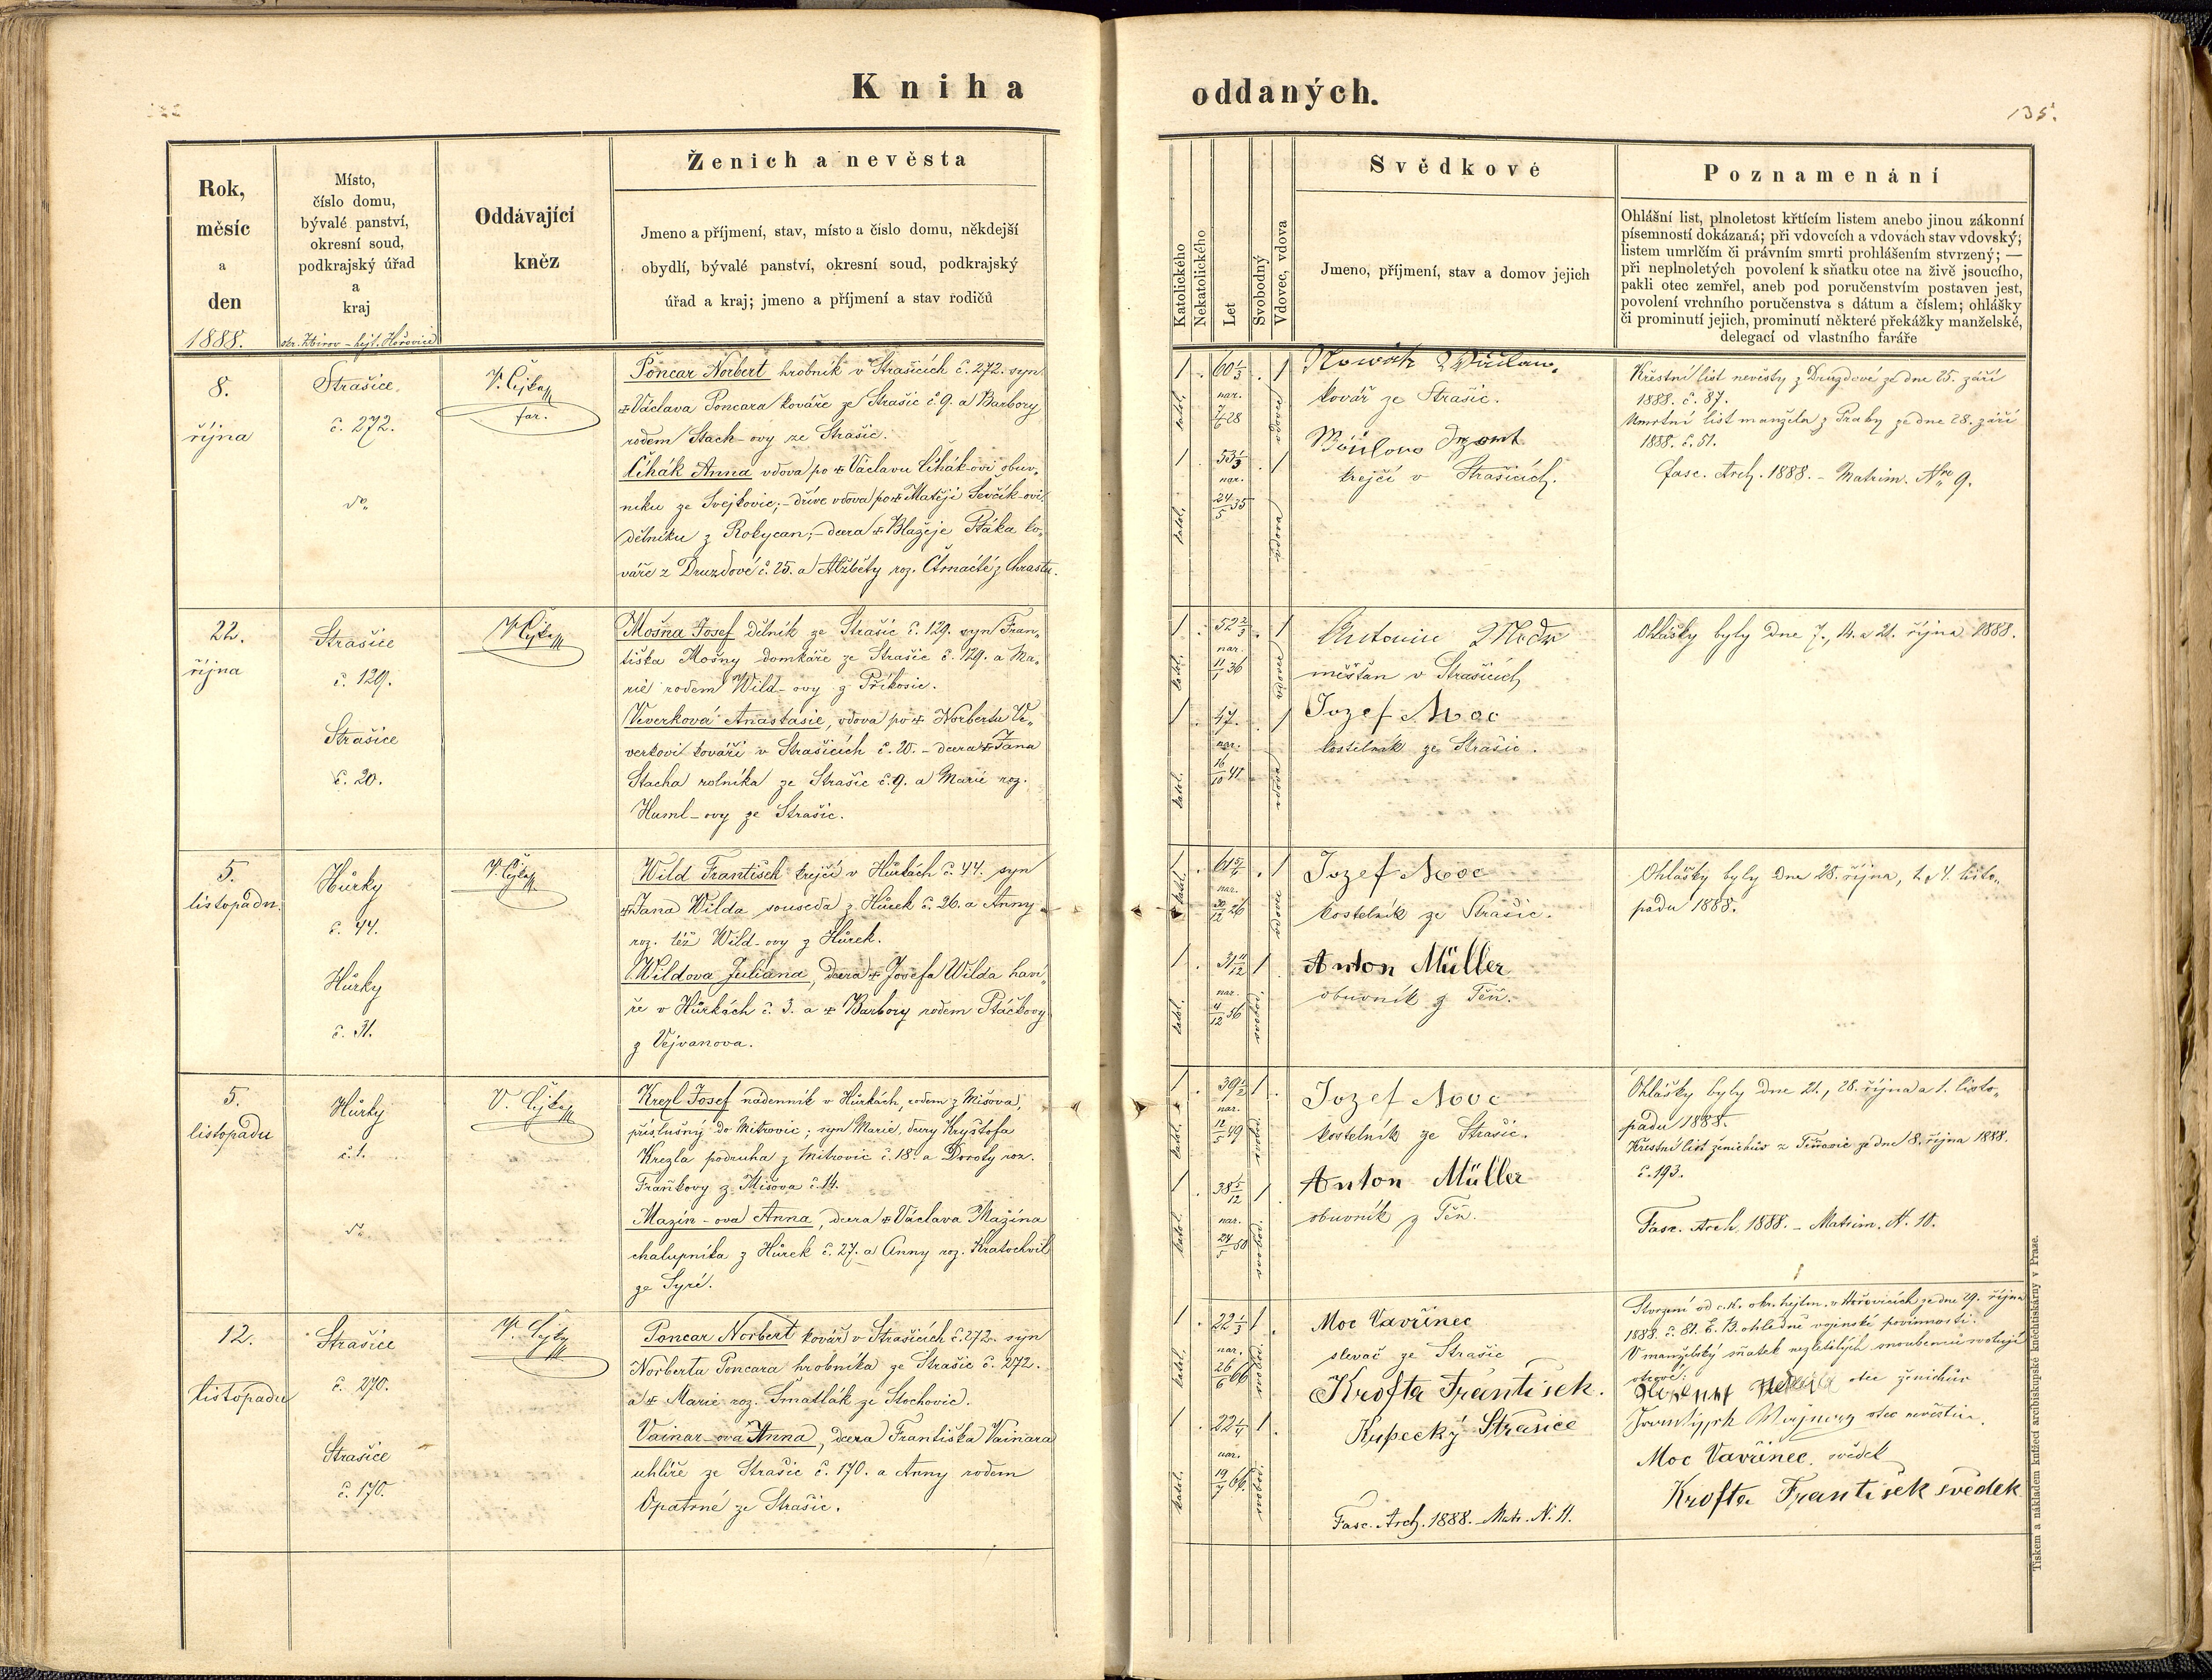 Kniha oddaných.
135.
Rok,
měsíc
a
den
1888.
Místo,
číslo domu,
bývalé panství,
okresní soud,
podkrajský úřad
a
kraj
okr. Zbirov – hejt. Hořovice
Oddávající
kněz
Ženich a nevěsta
Jmeno a příjmení, stav, místo a číslo domu, někdejší
obydlí, bývalé panství, okresní soud, podkrajský
úřad a kraj; jmeno a příjmení a stav rodičů
Katolického
Nekatolického
Let
Svobodný
Vdovec, vdova
Svědkové
Jmeno, příjmení, stav a domov jejich
Poznamenání
Ohlášní list, plnoletost křtícím listem anebo jinou zákonní
písemností dokázaná; při vdovcích a vdovách stav vdovský;
listem umrlčím či právním smrti prohlášením stvrzený; —
při neplnoletých povolení k sňatku otce na živě jsoucího,
pakli otec zemřel, aneb pod poručenstvím postaven jest,
povolení vrchního poručenstva s dátum a číslem; ohlášky
či prominutí jejich, prominutí některé překážky manželské,
delegací od vlastního faráře
8.
října
Strašice
č. 272.
V. Čejka
far.
Poncar Norbert hrobník v Strašicích č. 272. syn
+ Václava Poncara kováře ze Strašic č. 9. a Barbory
rodem Stach-ovy ze Strašic.
Čihák Anna vdova po + Václavu Čihák-ovi obuv-
níku ze Svejkovic; – dříve vdova po + Matěji Ševčík-ovi
dělníku z Rokycan; – dcera + Blažeje Ptáka ko-
váře z Druzdové č. 25. a Alžběty roz. Čtrnácté z Chrastu.
katol.
1
60 1/3
nar.
7/6 28
1
vdovec
katol.
1
53 1/3
nar.
24/5 35
1
vdova
Nowák Wáclaw,
kovář ze Strašic.
krejčí v Strašicích.
Křestní list nevěsty z Druzdové ze dne 25. září
1888. č. 87.
Úmrtní list manžela z Prahy ze dne 28. září
1888. č. 51.
fasc. Arch. 1888. – Matrim. Nro 9.
22.
října
Strašice
č. 129.
Strašice
č. 20.
V. Čejka
Mošna Josef dělník ze Strašic č. 129. syn Fran-
tiška Mošny domkáře ze Strašic č. 129. a Ma-
rie rodem Wild-ovy z Příkosic.
Veverková Anastasie, vdova po + Norbertu Ve-
verkovi kováři v Strašicích č. 20. – dcera + Jana
Stacha rolníka ze Strašic č. 9. a Marie roz.
Huml-ovy ze Strašic.
katol.
1
52 2/3
nar.
11/1 36
1
vdovec
katol.
1
47.
nar.
16/10 41
1
vdova
Antonín
měšťan v Strašicích
Jozef Moc
kostelník ze Strašic.
Ohlášky byly dne 7., 14. a 21. října 1888.
5.
listopadu
Hůrky
č. 44.
Hůrky
č. 31.
V. Čejka
Wild František krejčí v Hůrkách č. 44. syn
+ Jana Wilda souseda z Hůrek č. 26. a Anny
roz. též Wild-ovy z Hůrek.
Wildova Juliana, dcera + Josefa Wilda haví-
ře v Hůrkách č. 3. a + Barbory rodem Ptáčkovy
z Vejvanova.
katol.
1
nar.
30/12 26
1
vdovec
katol.
1
31 11/12
nar.
4/12 56
1
svobodná
Jozef Moc
kostelník ze Strašic.
Anton Müller
obuvník z Těň.
Ohlášky byly dne 28. října, 1. a 4. listo-
padu 1888.
5.
listopadu
Hůrky
č. 1.
V. Čejka
Krezl Josef nádenník v Hůrkách, rodem z Mišova,
příslušný do Mitrovic; syn Marie, dcery Kryštofa
Krezla podruha z Mitrovic č. 18. a Doroty roz.
Fraňkovy z Mišova č. 14.
Mazín-ova Anna, dcera + Václava Mazína
chalupníka z Hůrek č. 27. a Anny roz. Kratochvíl
ze Syré.
katol.
1
39 1/2
nar.
12/5 49
1
katol.
1
38 5/12
nar.
24/5 50
1
svobodná
Jozef Moc
kostelník ze Strašic.
Anton Müller
obuvník z Těň.
Ohlášky byly dne 21., 28. října a 1. listo-
padu 1888.
Křestní list ženichův z Těňovic ze dne 18. října 1888.
č. 193.
Fasc. Arch. 1888. – Matrim. N. 10.
12.
listopadu
Strašice
č. 270.
Strašice
č. 170.
V. Čejka
Poncar Norbert kovář v Strašicích č. 272. syn
Norberta Poncara hrobníka ze Strašic č. 272.
a + Marie roz. Šmatlák ze Stochovic.
Vainar-ova Anna, dcera Františka Vainara
uhlíře ze Strašic č. 170. a Anny rodem
Opatrné ze Strašic.
katol.
1
22 1/3
nar.
26/6 66
1
katol.
1
22 1/4
nar.
19/7 66.
1
svobodná
Moc Vavřinec
slevač ze Strašic
Krofta František.
Kupecký Strašice
Fasc. Arch. 1888. – Matr. N. 11.
Stvrzení od c. k. okr. hejtm. v Hořovicích ze dne 29. října
1888. č. 81. E. B. ohledně vojenské povinnosti.
V manželský sňatek nezletilých snoubenců svolují
otcové:
otec ženichův
otec nevěstin.
Moc Vavřinec, svědek
Krofta František svědek
Tiskem a nákladem knížecí arcibiskupské knihtiskárny v Praze.